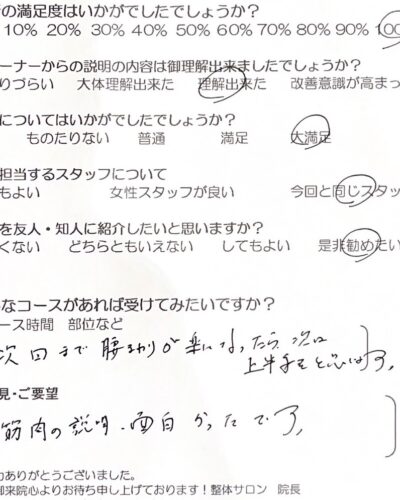 の満足度はいかがでしたでしょうか?
10% 20% 30% 40% 50% 60% 70% 80% 90% 100
ーナーからの説明の内容は御理解出来ましたでしょうか?
りづらい 大体理解出来た 理解出来た 改善意識が高まっ
についてはいかがでしたでしょうか?
ものたりない 普通 満足 大満足
担当するスタッフについて
もよい 女性スタッフが良い 今回と同じスタッ
を友人・知人に紹介したいと思いますか?
くない どちらともいえない してもよい 是非勧めたい
なコースがあれば受けてみたいですか?
ース時間 部位など
次回まで腰まわりが楽になったら次は
上半身をと思います。
見・ご要望
筋肉の説明、面白かったです。
力ありがとうございました。
御来院心よりお待ち申し上げております!整体サロン 院長